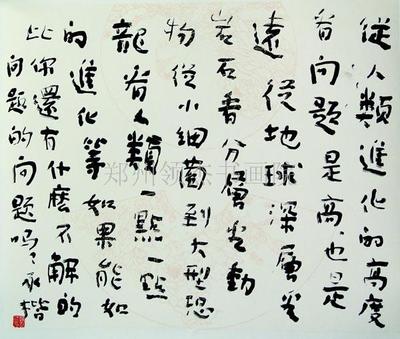 從人類進化的高度
看问题是高,也是
遠 從地球深層
岩石看分層 動
物從小细菌到大型恐
龍看人類一點一點
的進化等如果能如
此你還有什麼不解的
问题的问题吗
郑州领 书画